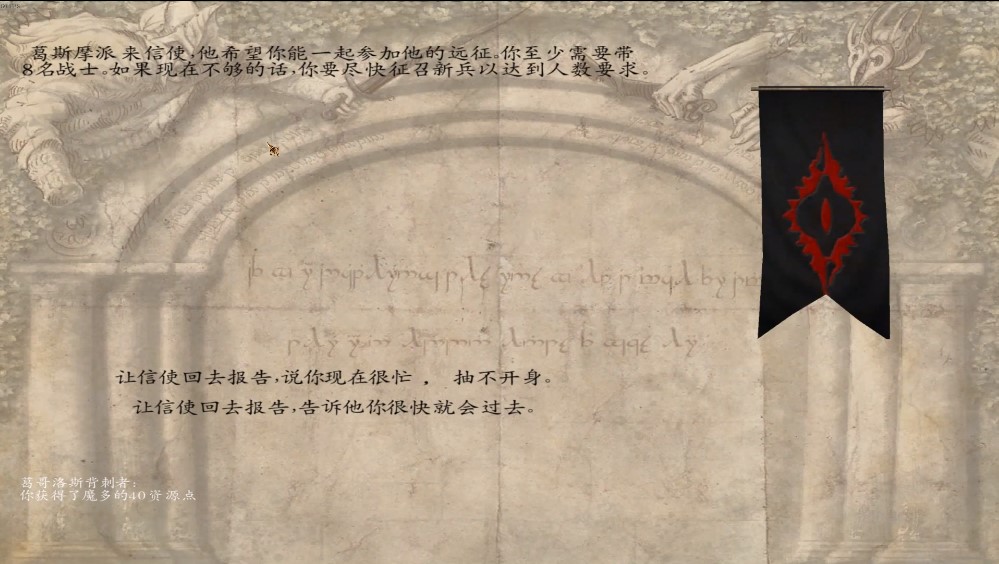 葛斯摩派 来信使,他希望你能一起参加他的远征。你至少需要带
8名战士。如果现在不够的话,你要尽快征召新兵以达到人数要求。
让信使回去报告,说你现在很忙 , 抽不开身。
让信使回去报告,告诉他你很快就会过去。
葛哥洛斯背刺者:
你获得了魔多的40资源点